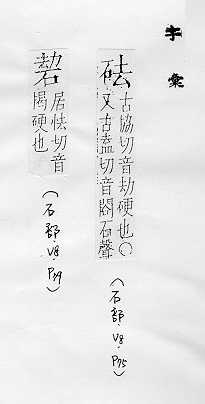 字彙
砝
古協切音劫硬也〇
又古盍切音閤石聲
(石部.V8.P75)
硈
居怯切音
擖硬也
(石部.V8.P79)